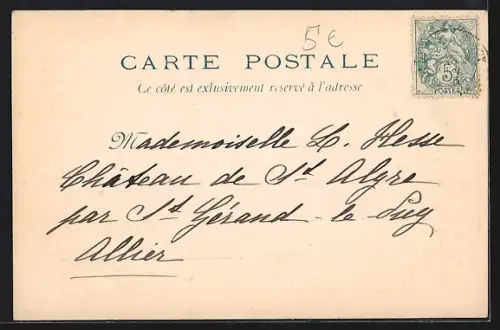 5€
CARTE POSTALE
Ce côté est exclusivement réservé à l'adresse
5c
POSTES
Mademoiselle L. Hesse
Château de St Algre
par St Gérand-le-Puy
Allier